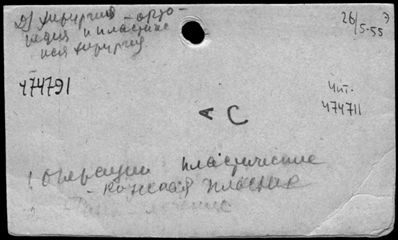 2) Хирургия – орто-
педия и пластиче-
ская хирургия
26/5-55 Э
474791
Чит.
474711
А С
1. Операции пластические
- кожная пластика